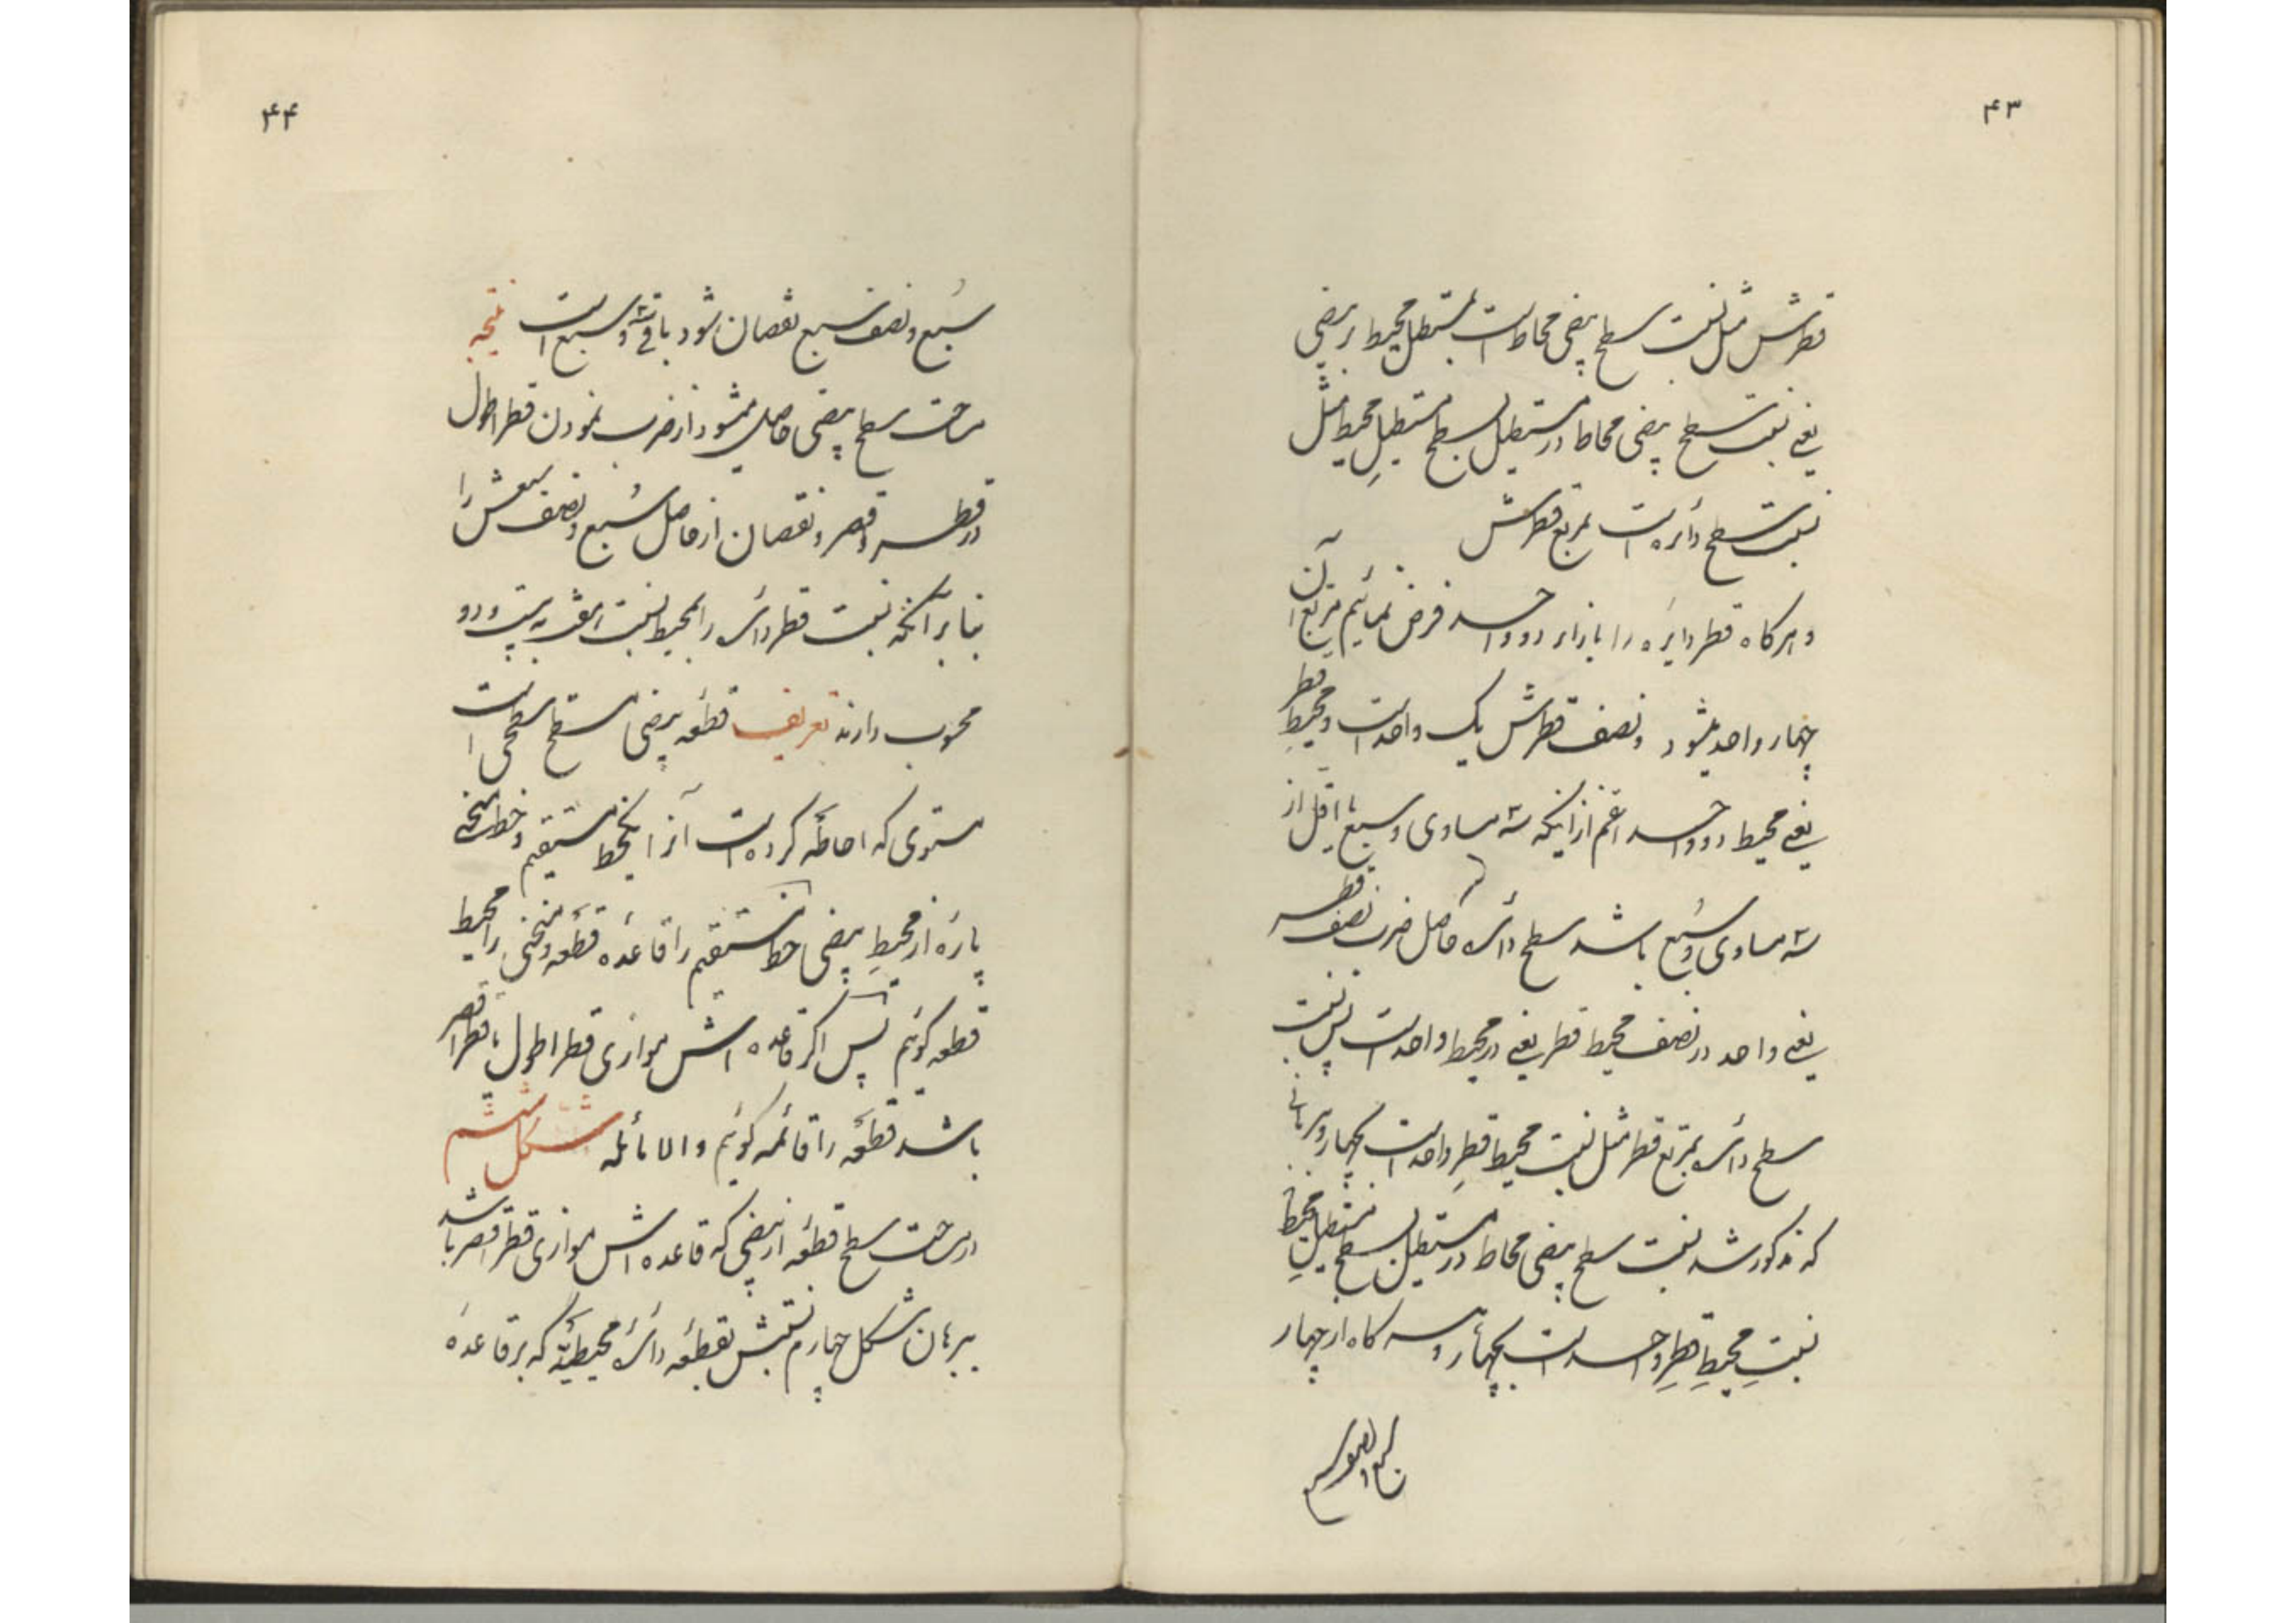 ۴۳
قطرش مثل نسبت سطح بیضی محاط است بمستطیل محیط بر بیضی
یعنی نسبت سطح بیضی محاط در مستطیل بسطح مستطیلِ محیط مثل
نسبت سطح دائره است بمربع قطرش
و هرکاه قطر دایره را بازاء دو واحد فرض نمائیم مربع آن
چهار واحد میشود و نصف قطرش یک واحد است و محیط قطر
یعنی محیط دو واحد اعم از اینکه سه مساوی و سبع یا اقل از
سه مساوی و سُبع باشد سطح دائره حاصل ضرب نصف قطر
یعنی واحد در نصف محیط قطر یعنی در محیط واحد است پس نسبت
سطح دائره بمربع قطر مثل نسبت محیط قطرِ واحد است بچهار و برهانی
که مذکور شد نسبت سطح بیضی محاط در مستطیل بسطح مستطیلِ محیط
نسبتِ محیطِ قطرِ واحد است بچهار و سه کاه از چهار
سبع و نصف سبع
۴۴
سُبع و نصف سبع نقصان شود باقی سه و سبع است نتیجه
مساحت سطح بیضی حاصل میشود از ضرب نمودن قطر اطول
در قطر اقصر و نقصان از حاصل سُبع و نصف سبعش را
بنا بر آنکه نسبت قطر دائره را بمحیط نسبت هفت به بیست و دو
محسوب دارند تعریف قطعه بیضی مسطح سطحی است
مستوی که احاطه کرده است آنرا یکخط مستقیم و خط منحنی
پارهٔ از محیطِ بیضی خط مستقیم را قاعدهٔ قطعه و منحنی را محیط
قطعه کوئیم پس اکر قاعده اش موازی قطر اطول یا قطر اقصر
باشد قطعه را قائمه کوئیم و الا مائله شکل ششم
در مساحت سطح قطعه از بیضی که قاعده اش موازی قطر اقصر باشد
ببرهان شکل چهارم نسبتش بقطعه دائرهٔ محیطیّه که بر قاعدهٔ